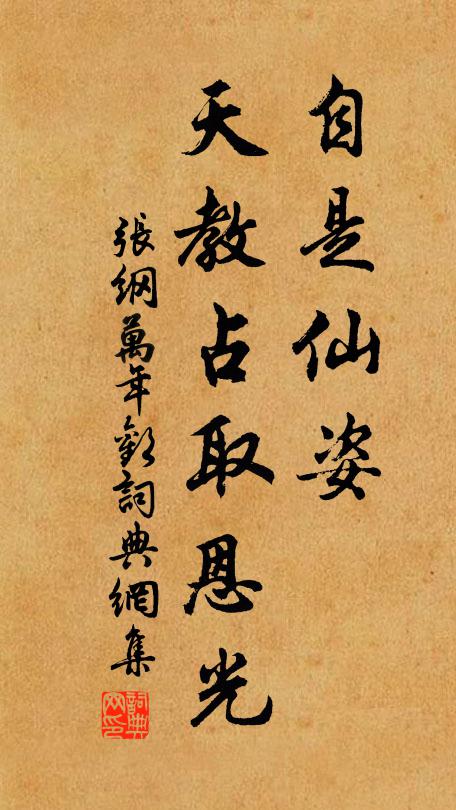 自是仙姿
天教占取恩光
張綱萬年歡詞典網集
詞典
网印